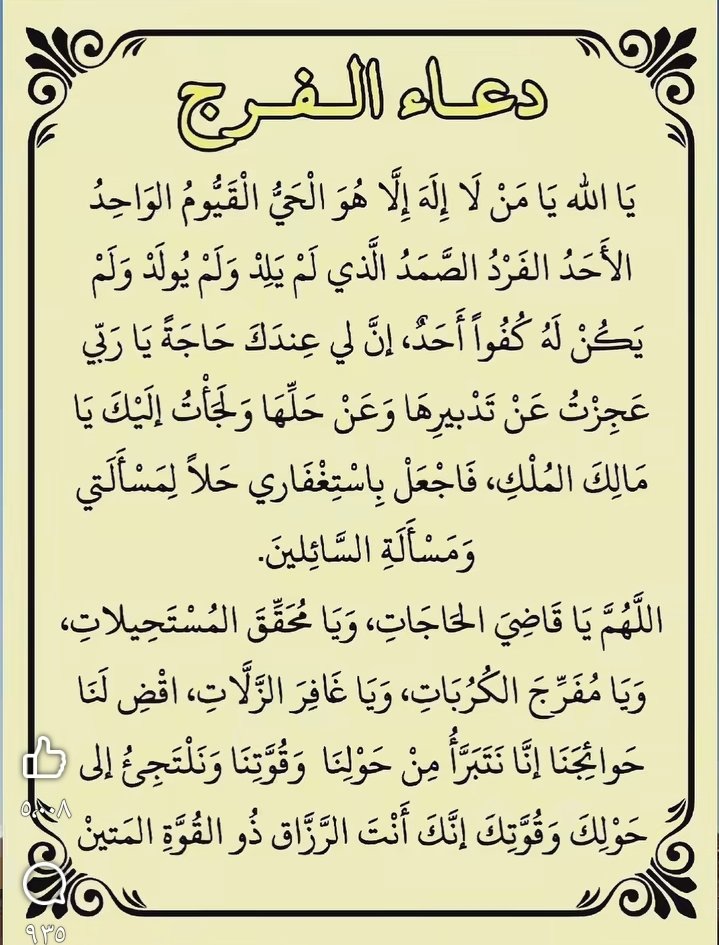 دعاء الفرج
يَا الله يَا مَنْ لَا إِلَهَ إِلَّا هُوَ الْحَيُّ الْقَيُّومُ الوَاحِدُ
الأَحَدُ الفَرْدُ الصَّمَدُ الَّذي لَمْ يَلِدْ وَلَمْ يُولَدْ وَلَمْ
يَكُنْ لَهُ كُفُواً أَحَدٌ، إنَّ لي عِندَكَ حَاجَةً يَا رَبّي
عَجِزْتُ عَنْ تَدْبيرِهَا وَعَنْ حَلِّهَا وَلَجَأْتُ إلَيْكَ يَا
مَالِكَ المُلْكِ، فَاجْعَلْ بِاسْتِغْفَاري حَلاً لِمَسْأَلَتي
وَمَسْأَلَةِ السَّائِلينَ.
اللَّهُمَّ يَا قَاضِيَ الحَاجَاتِ، وَيَا مُحَقِّقَ المُسْتَحِيلاتِ،
وَيَا مُفَرِّجَ الكُرُبَاتِ، وَيَا غَافِرَ الزَّلَّاتِ، اقْضِ لَنَا
حَوائِجَنَا إنَّا نَتَبَرَّأُ مِنْ حَوْلِنَا وَقُوَّتِنَا وَنَلْتَجِئُ إلى
حَوْلِكَ وَقُوَّتِكَ إنَّكَ أَنْتَ الرَّزَّاق ذُو القُوَّةِ المَتينْ
٥٠٠٨
٩٣٥